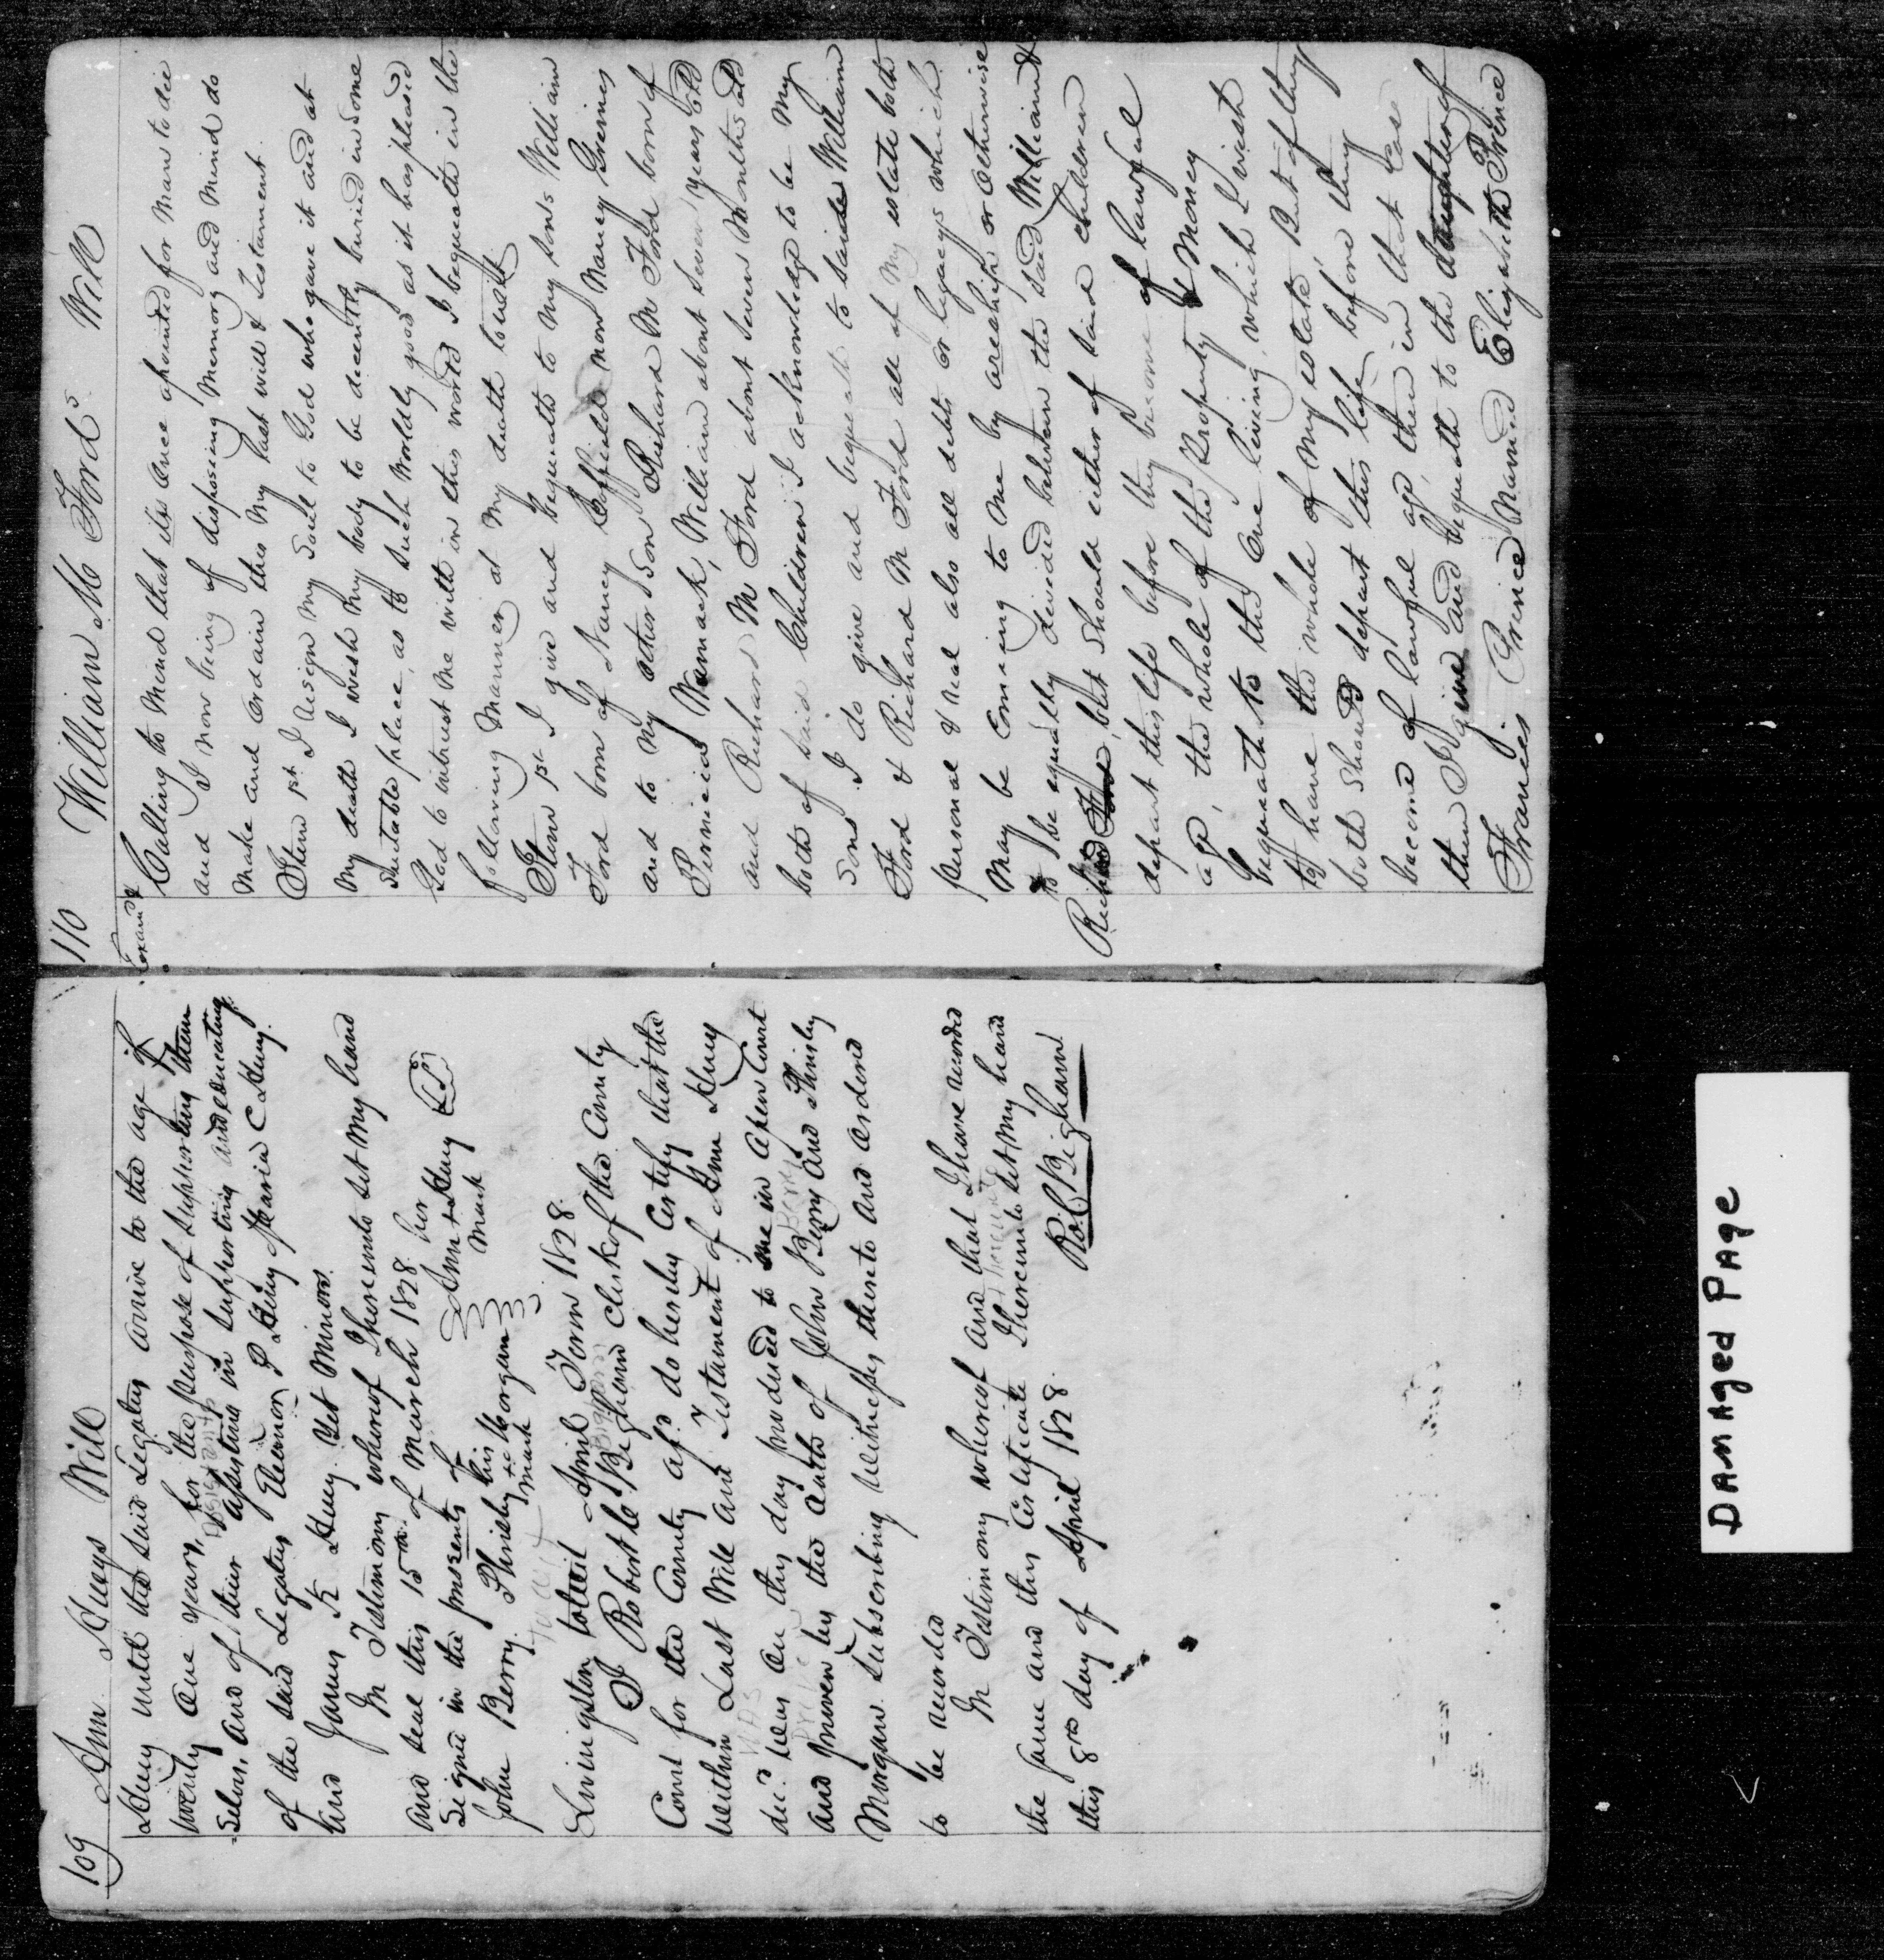 109 Ann Hueys Will
Huey until the said Legatees arrive to the age of
twenty one years, for the purpose of supporting them
selves, and of their assisting in supporting and educating
of the said Legatees Eleanor P Huey Maria C Huey.
and James K Huey. Yet Minors.
In Testimony whereof I hereunto set my hand
and seal this 15th of March 1828
Signed in the presents of
her
Ann + Huey
mark
John Berry. Phinisby his Morgan
mark
Livingston April Term 1828.
I Robert Bigham Clerk of the County
Court for the County afsd. do hereby Certify that the
within Last Will and Testament of Ann Huey
decd. was on this day produced to me in open Court
and proven by the oaths of John Berry and Phinisby
Morgan Subscribing Witnesses thereto and ordered
to be recorded
In Testimony whereof and that I have recorded
the same and this Certificate I hereunto set my hand
this 8th day of April 1828.
Bigham
110 William M Fords Will
Examd
Calling to Mind that its once apointed for Man to die
and I now being of disposing Memory and Mind do
make and ordain this my last will & Testament.
Item 1st I resign my Soul to God who gave it and at
my death I wish my body to be decently buried in some
suitable place, as to such Worldly good as it has pleased
God to intrust me with in this world I bequeath in the
following Manner at My death to wit
Item 1st I give and bequeath to my sons William
Ford born of Nancy Coffield now Nancy Grimes
and to my other Son Richard M Ford born of
Womack, William about Seven years old
and Richard M Ford about Seven Months old
both of said Children I acknowledge to be My
Sons I do give and bequeath to saide William
Ford & Richard M Ford all of My estate both
personal & real also all debts or legacys which
May be Comeing to me by areship or otherwise
to be equally devided between the said William &
Richard Ford, but Should either of said children
depart this life before they become of lawful
age, the whole of the Property & Money
bequeath to the One living, which I wish
to have the whole of my estate, But if they
both Should depart this life before they
become of lawful age, then in that Case
then I give and bequeath to the daughter of
Francis Prince Named Elizabeth Prince
DAMAGED PAGE